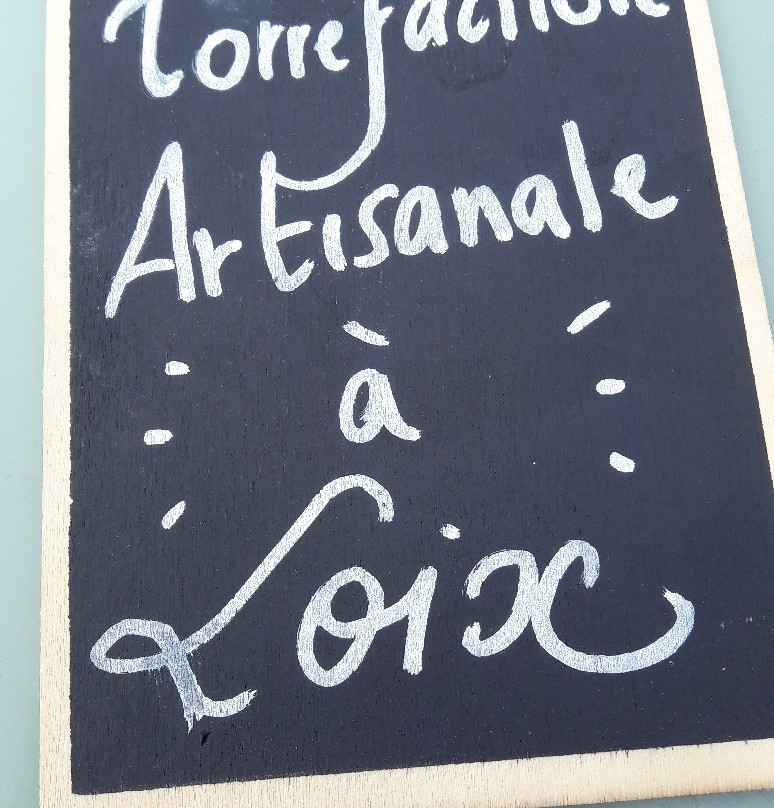 Torrefaction
Artisanale
à
Loix